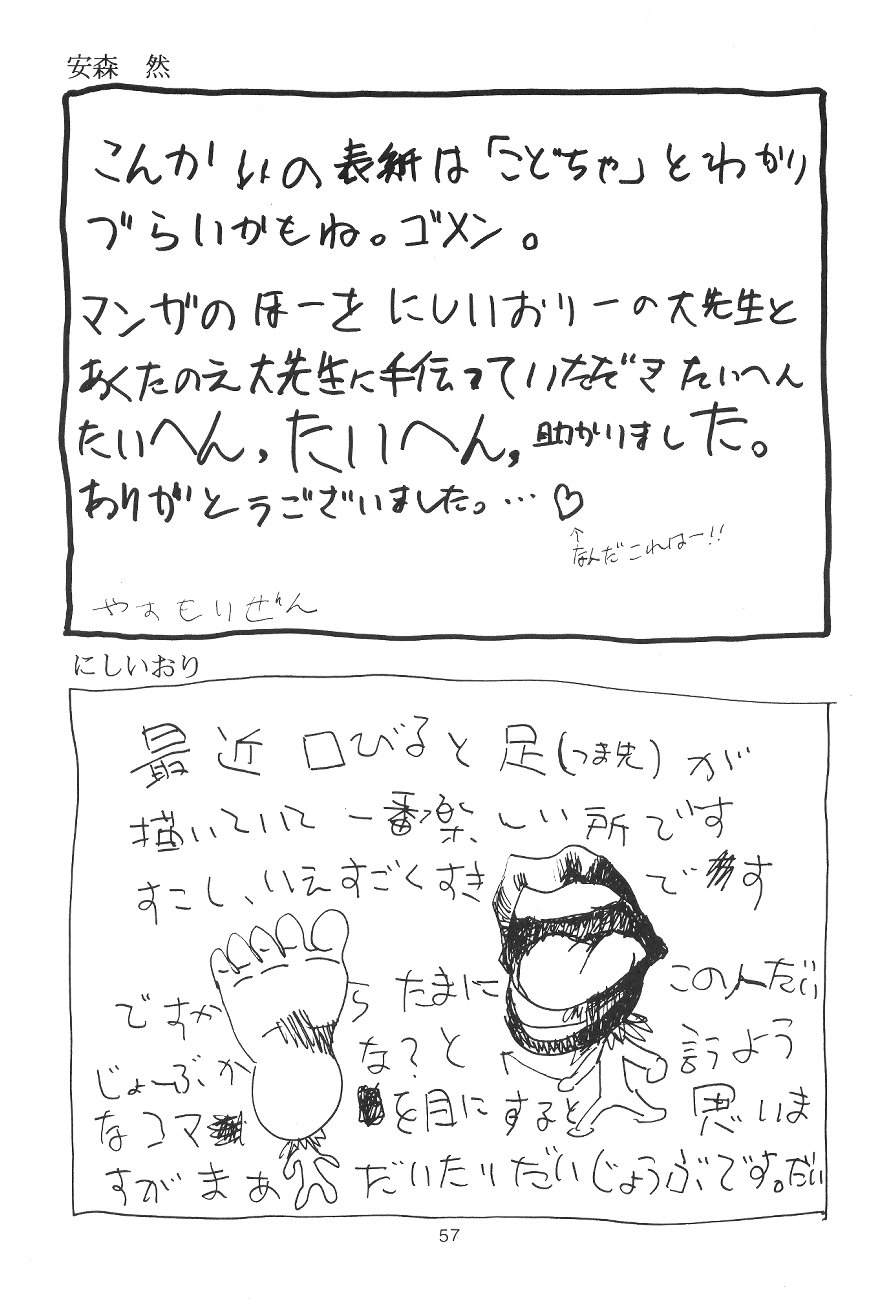 安森　然
こんかいの表紙は「こどちゃ」とわかり
づらいかもね。ゴメン。
マンガのほーを にしいおりーの大先生と
あくたのえ大先生に手伝っていただき たいへん
たいへん,たいへん,助かりました。
ありがとうございました。…♡
↑
なんだこれはー!!
やすもりぜん
にしいおり
最近 口びると足(つま先)が
描いていて一番楽しい所です
すこし、いえすごくすき です
ですから たまに この人だい
じょーぶかな?と言うよう
なコマを目にすると思いま
すがまぁ だいたいだいじょうぶです。だい
57